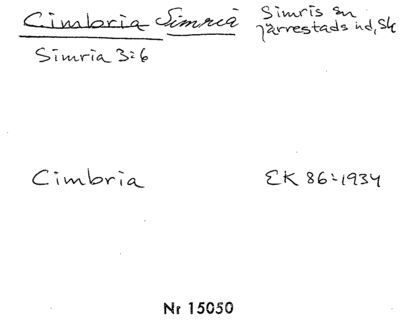 Cimbria Simria Simris sn
Järrestads hd, Sk
Simria 3:6
Cimbria EK 86:1934
Nr 15050